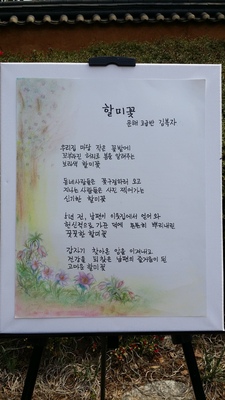 할미꽃
문해 3급반 김복자
우리집 마당 작은 꽃밭에
꼬부라진 허리로 봄을 알려주는
보라색 할미꽃
동네사람들은 꽃구경하러 오고
지나는 사람들은 사진 찍어가는
신기한 할미꽃
6년 전, 남편이 이웃집에서 얻어와
헌신적으로 가꾼 덕에 튼튼히 뿌리내린
꿋꿋한 할미꽃
갑자기 찾아온 암을 이겨내고
건강을 되찾은 남편의 즐거움이 된
고마운 할미꽃